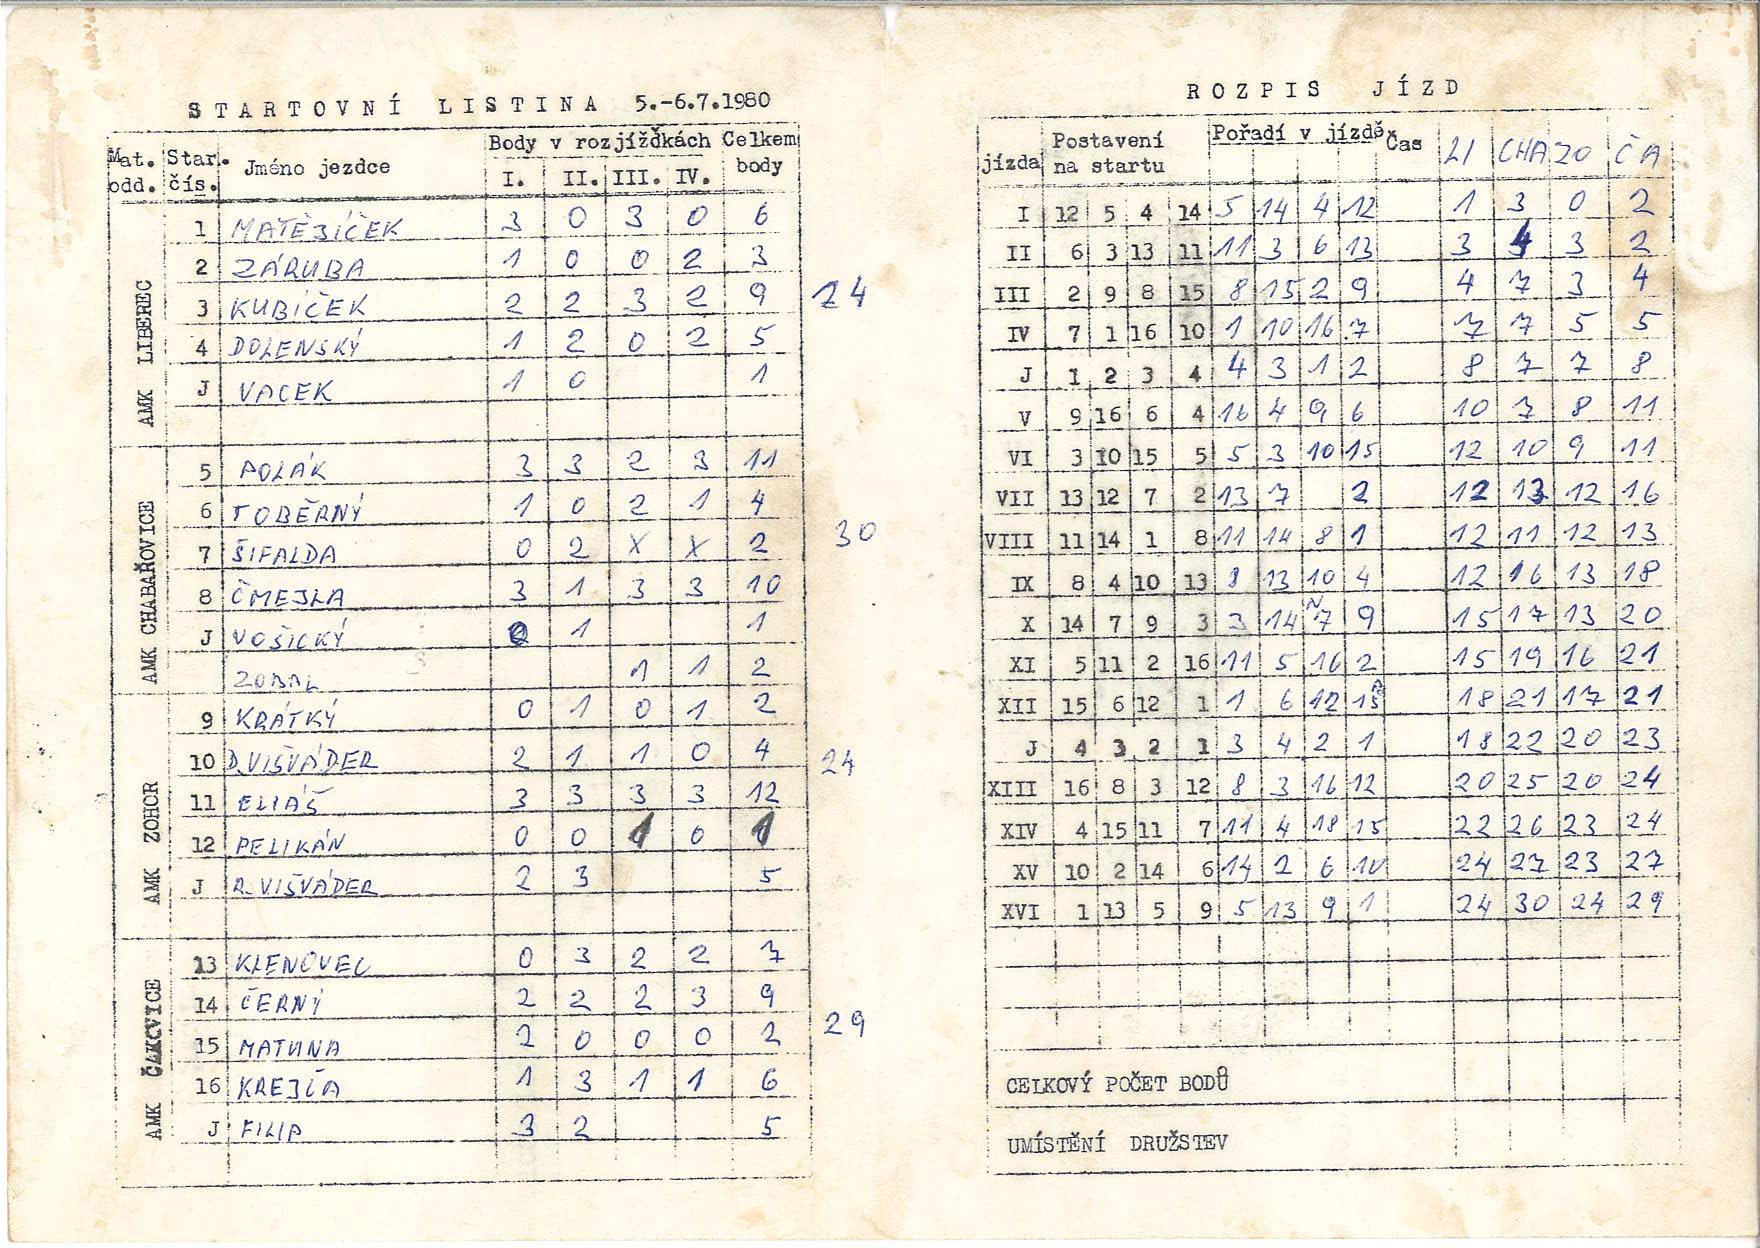 STARTOVNÍ LISTINA 5.-6.7.1980
Mat. odd. Star. čís. Jméno jezdce Body v rozjížďkách Celkem body
I. II. III. IV.
AMK LIBEREC
1 MATĚJÍČEK 3 0 3 0 6
2 ZÁRUBA 1 0 0 2 3
3 KUBÍČEK 2 2 3 2 9 24
4 DOLENSKÝ 1 2 0 2 5
J VACEK 1 0 1
AMK CHABAŘOVICE
5 POLÁK 3 3 2 3 11
6 TOBĚRNÝ 1 0 2 1 4
7 ŠIFALDA 0 2 X X 2 30
8 ČMEJLA 3 1 3 3 10
J VOŠICKÝ 0 1 1
ZOBAL 1 1 2
AMK ZOHOR
9 KRÁTKÝ 0 1 0 1 2
10 D.VIŠVÁDER 2 1 1 0 4 24
11 ELIÁŠ 3 3 3 3 12
12 PELIKÁN 0 0 1 0 1
J R.VIŠVÁDER 2 3 5
AMK ČAKOVICE
13 KLENOVEC 0 3 2 2 7
14 ČERNÝ 2 2 2 3 9
15 MATUNA 2 0 0 0 2 29
16 KREJČA 1 3 1 1 6
J FILIP 3 2 5
ROZPIS JÍZD
jízda Postavení na startu Pořadí v jízdě Čas LI CHA ZO ČA
I 12 5 4 14 5 14 4 12 1 3 0 2
II 6 3 13 11 11 3 6 13 3 4 3 2
III 2 9 8 15 8 15 2 9 4 7 3 4
IV 7 1 16 10 1 10 16 7 7 7 5 5
J 1 2 3 4 4 3 1 2 8 7 7 8
V 9 16 6 4 16 4 9 6 10 7 8 11
VI 3 10 15 5 5 3 10 15 12 10 9 11
VII 13 12 7 2 13 7 2 12 13 12 16
VIII 11 14 1 8 11 14 8 1 12 11 12 13
IX 8 4 10 13 8 13 10 4 12 16 13 18
X 14 7 9 3 3 14 7 N 9 15 17 13 20
XI 5 11 2 16 11 5 16 2 15 19 16 21
XII 15 6 12 1 1 6 12 15 18 21 17 21
J 4 3 2 1 3 4 2 1 18 22 20 23
XIII 16 8 3 12 8 3 16 12 20 25 20 24
XIV 4 15 11 7 11 4 18 15 22 26 23 24
XV 10 2 14 6 14 2 6 10 24 27 23 27
XVI 1 13 5 9 5 13 9 1 24 30 24 29
CELKOVÝ POČET BODŮ
UMÍSTĚNÍ DRUŽSTEV